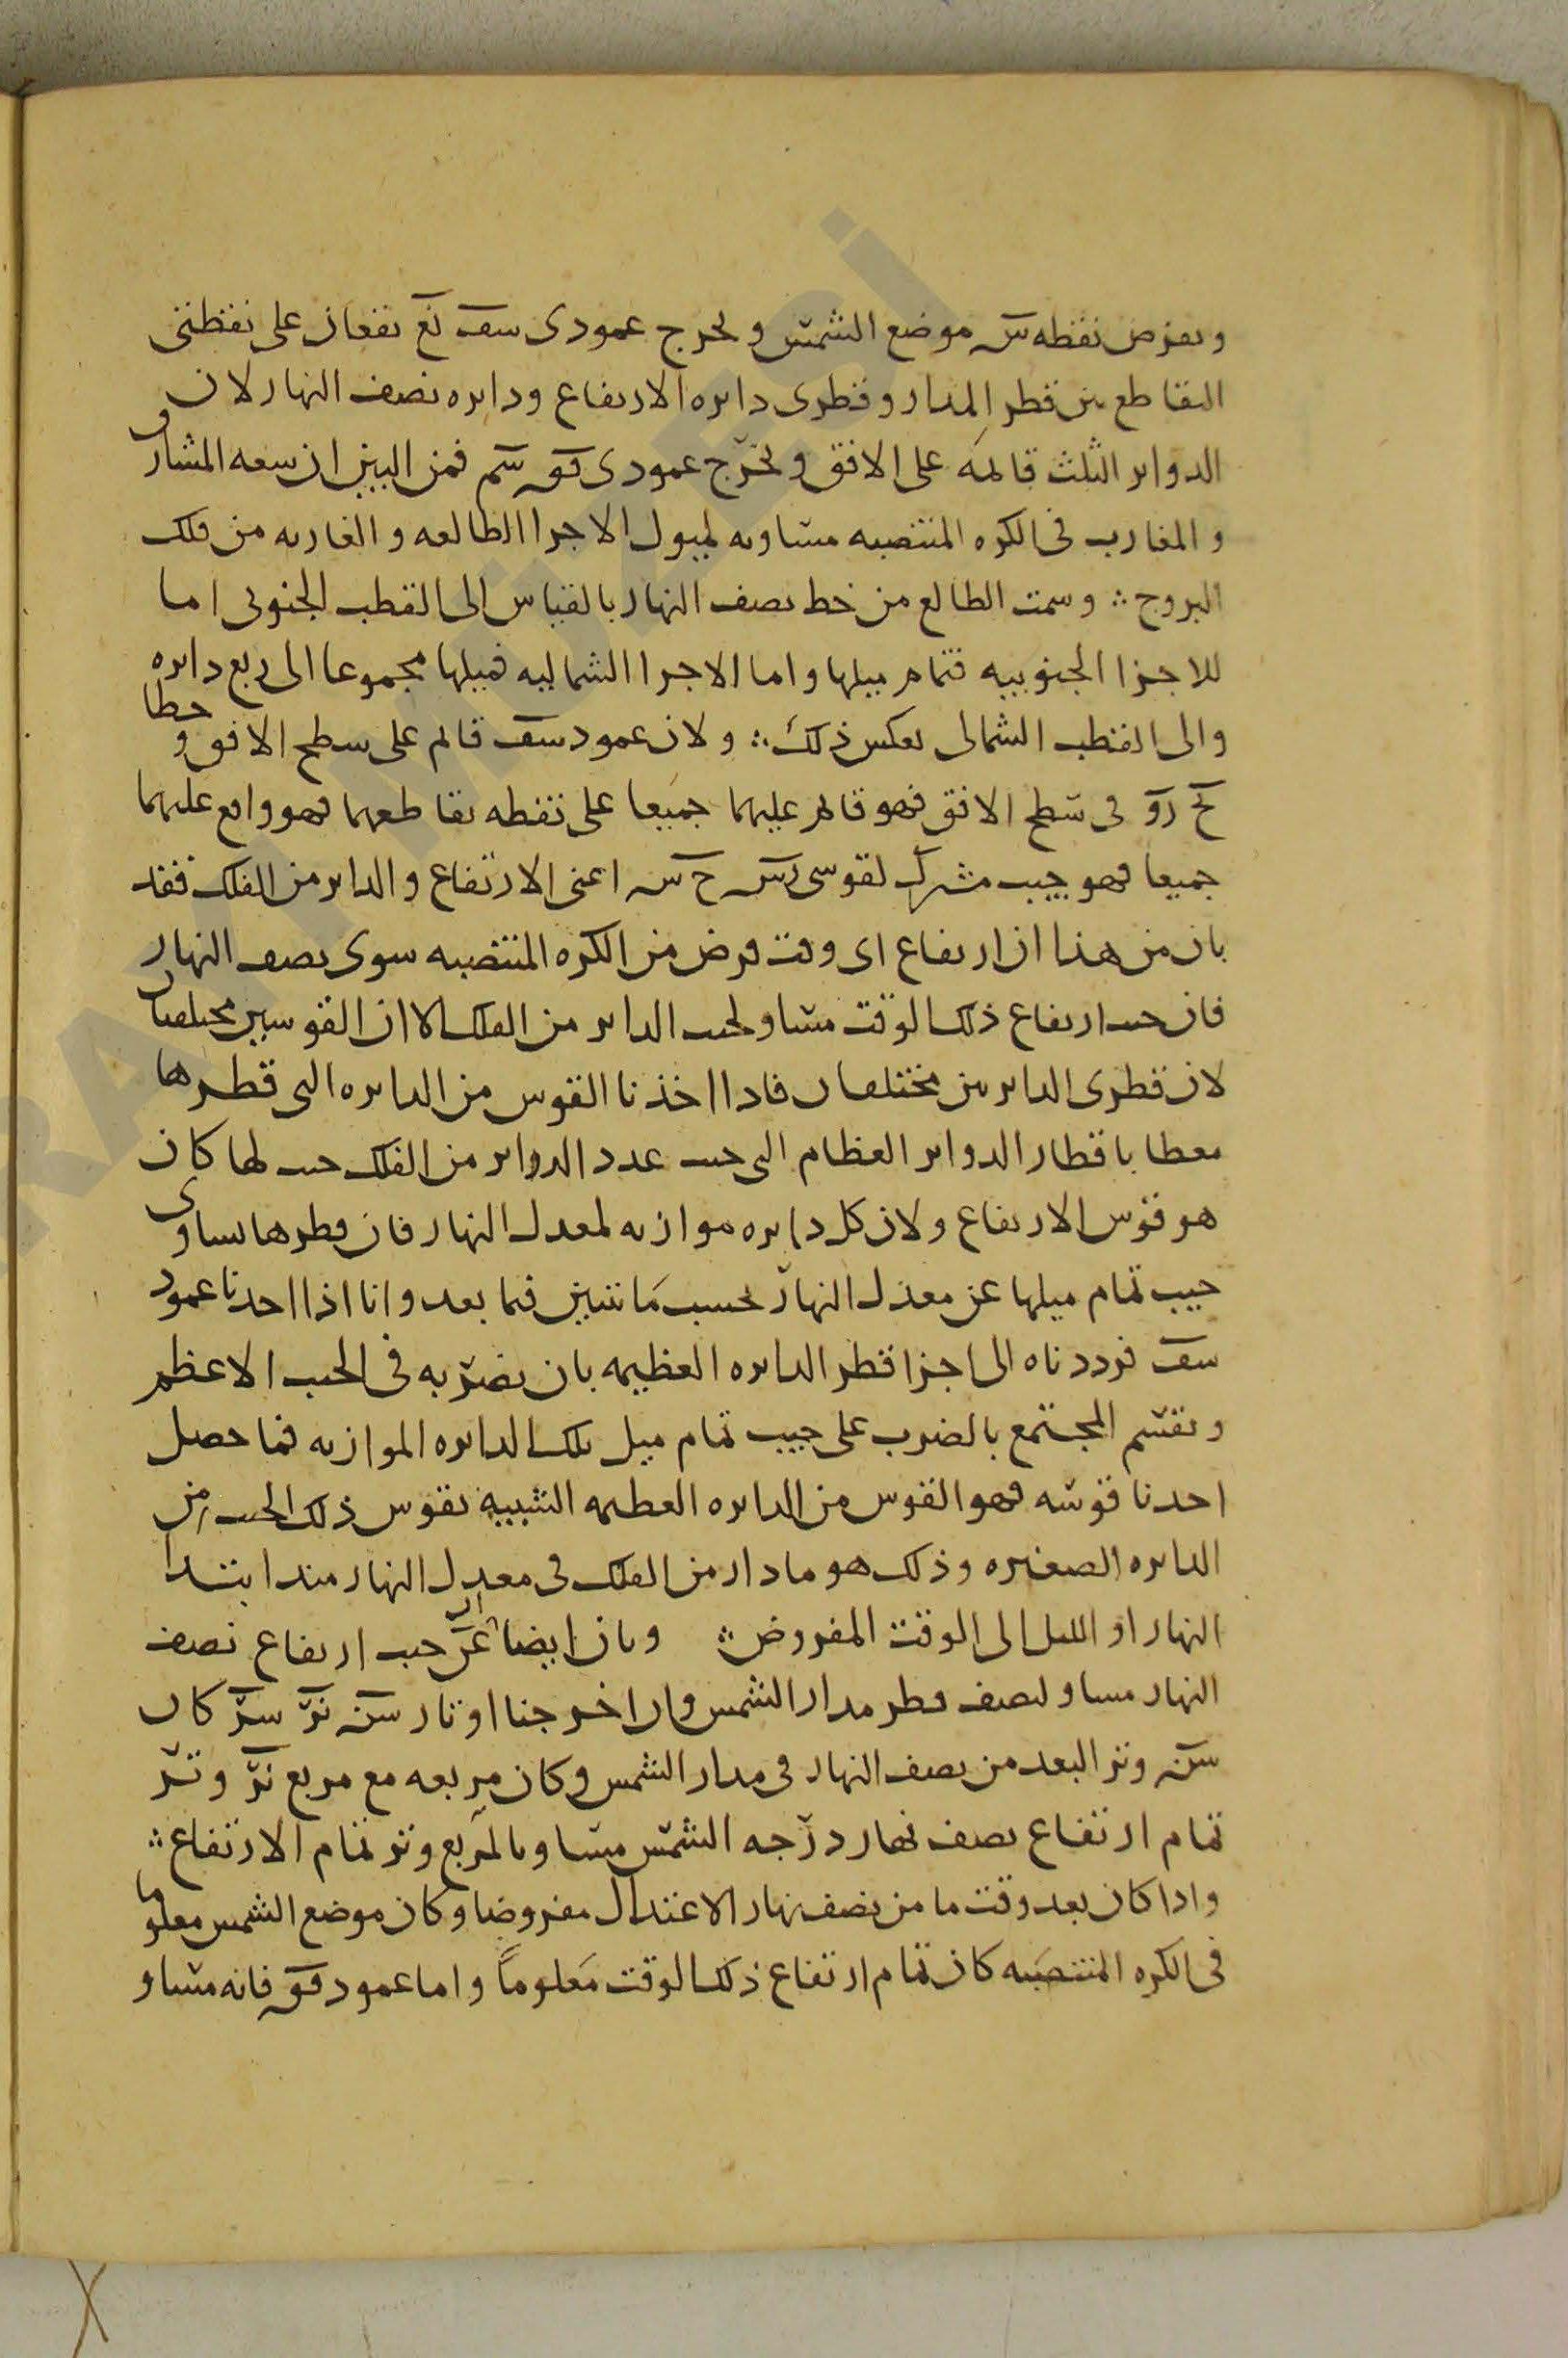 ونفرض نقطه س موضع الشمس ونخرج عمودى سف نع يقعان على نقطتى
التقاطع بين قطر المدار وقطرى دائره الارتفاع ودائره نصف النهار لان
الدوائر الثلث قائمه على الافق ونخرج عمودى فق سم فمن البين ان سعه المشارق
والمغارب فى الكره المنتصبه مساويه لميول الاجزا الطالعه والغاربه من فلك
البروج ؞ وسمت الطالع من خط نصف النهار بالقياس الى القطب الجنوبى اما
للاجزا الجنوبيه فتمام ميلها واما الاجزا الشماليه فميلها مجموعا الى ربع دائره
والى القطب الشمالى بعكس ذلك ؞ ولان عمود سف قائم على سطح الافق وخطا
كح رو فى سطح الافق فهو قائم عليهما جميعا على نقطه تقاطعهما فهو واقع عليهما
جميعا فهو جيب مشترك لقوسى رس ح س اعنى الارتفاع والدائر من الفلك فقد
بان من هذا ان ارتفاع اى وقت فرض من الكره المنتصبه سوى نصف النهار
فان جيب ارتفاع ذلك الوقت مساو لجيب الدائر من الفلك الا ان القوسين مختلفتان
لان قطرى الدائرتين مختلفان فاذا اخذنا القوس من الدائره التى قطرها
معطا باقطار الدوائر العظام التى جيب عدد الدوائر من الفلك جيب لها كان
هو قوس الارتفاع ولان كل دائره موازيه لمعدل النهار فان قطرها يساوى
جيب تمام ميلها عن معدل النهار بحسب ما نتبين فيما بعد وانا اذا اخذنا عمود
سف فرددناه الى اجزا قطر الدائره العظيمه بان نضربه فى الجيب الاعظم
ونقسم المجتمع بالضرب على جيب تمام ميل تلك الدائره الموازيه فما حصل
اخذنا قوسه فهو القوس من الدائره العظيمه الشبيه بقوس ذلك الجيب من
الدائره الصغيره وذلك هو ما دار من الفلك فى معدل النهار منذ ابتدا
النهار او الليل الى الوقت المفروض ؞ وبان ايضا ان عن جيب ارتفاع نصف
النهار مساو لنصف قطر مدار الشمس وان اخرجنا اوتار سن نز سز كان
سن وتر البعد من نصف النهار فى مدار الشمس وكان مربعه مع مربع نز وتر
تمام ارتفاع نصف نهار درجه الشمس مساويا لمربع وتر تمام الارتفاع ؞
واذا كان بعد وقت ما من نصف نهار الاعتدال مفروضا وكان موضع الشمس معلوما
فى الكره المنتصبه كان تمام ارتفاع ذلك الوقت معلوماً واما عمود فق فانه مساو